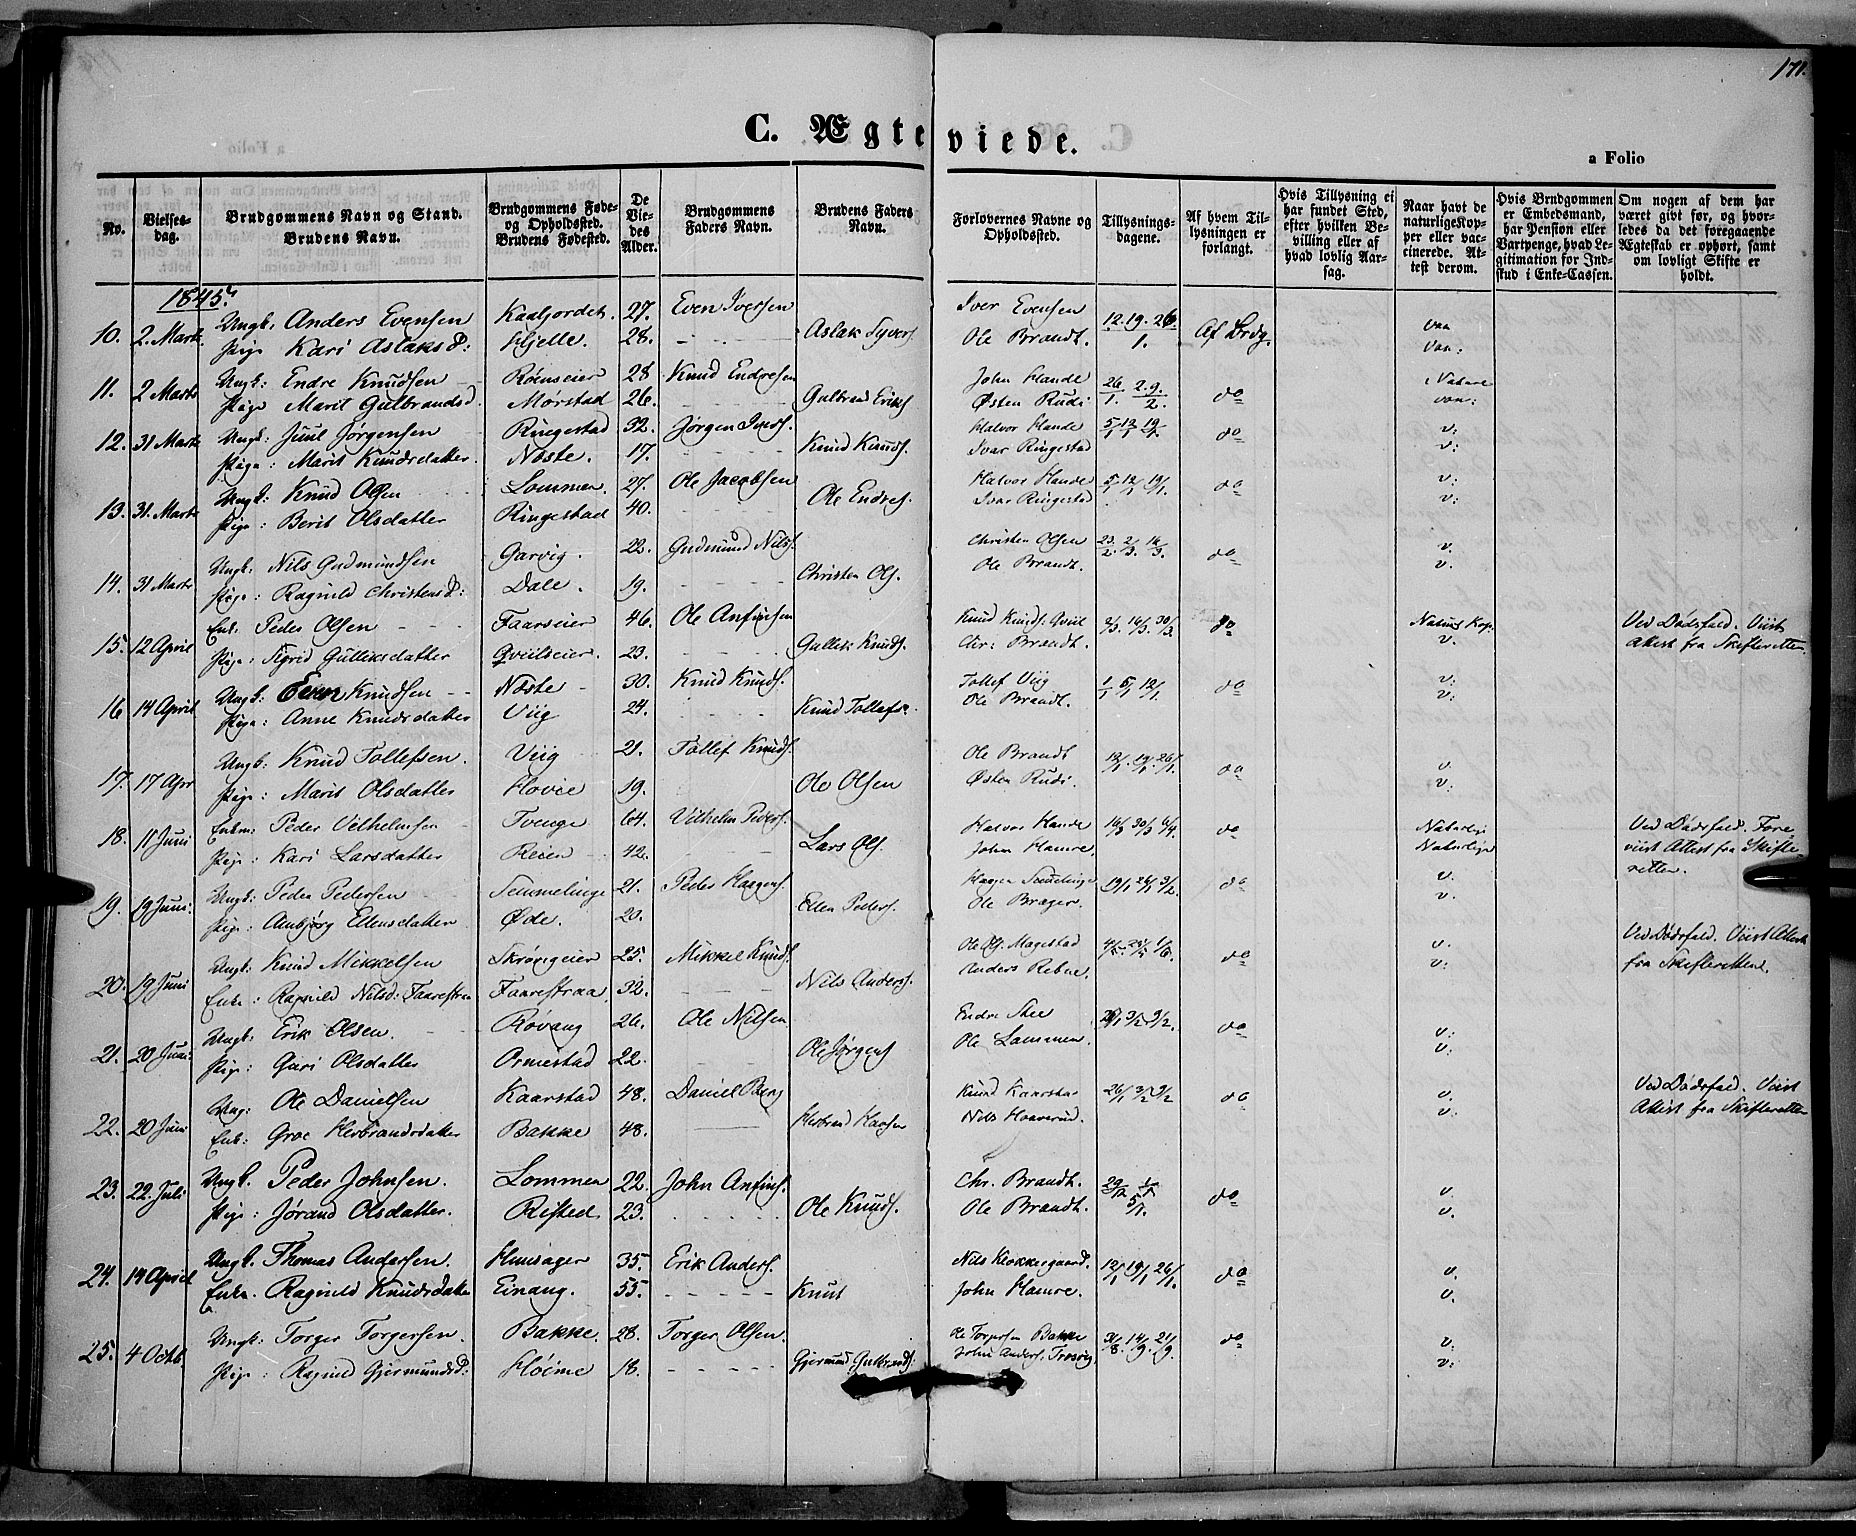 171.
C. Ægteviede.
a Folio
No.
Vielses-
dag.
Brudgommens Navn og Stand.
Brudens Navn.
Brudgommens Føde-
og Opholdssted.
Brudens Fødested.
De
Vie-
des
Alder.
Brudgommens
Faders Navn.
Brudens Faders
Navn.
Forlovernes Navne og
Opholdssted.
Tillysnings-
dagene.
Af hvem Til-
lysningen er
forlangt.
Hvis Tillysning ei
har fundet Sted,
efter hvilken Be-
villing eller af
hvad lovlig Aar-
sag.
Naar havt de
naturlige Kop-
per eller vac-
cinerede. At-
test derom.
Hvis Brudgommen
er Embedsmand,
har Pension eller
Vartpenge, hvad Le-
gitimation for Ind-
skud i Enke-Cassen.
Om nogen af dem har
været gift før, og hvor-
ledes da det foregaaende
Ægteskab er ophørt, samt
om lovligt Skifte er
holdt.
1845.
10. 2. Marts Ungk. Anders Evensen Kaaljordet. 27. Even Iversen Iver Evensen 12. 19. 26/1. Af Brdg. vac
Pige Kari Aslaksd: Hjelle. 28. Aslak Syvers. Ole Brandt. vac:
11. 2 Marts Ungk: Endre Knudsen Røenseier 28 Knud Endresen John Hande 26/1. 2. 9./2. do Nature
Pige Marit Gulbrandsd. Mørstad 26. Gulbrand Eriks. Østen Rudi vac:
12. 31 Marts Ungk: Juul Jørgensen Ringestad 32. Jørgen Halvor Hande 5/1 12/1 19/1. do v:
Pige: Marit Knudsdatter. Nøste. 17. Knud Knuds. Ivar Ringestad v:
13. 31. Marts Ungk: Knud Olsen Lommen. 27. Ole Jacobsen Halvor Hande 5/1 12/1 19/1. do v:
Pige: Berit Olsdatter Ringestad 40. Ole Endres. Ivar Ringestad v:
14. 31 Marts Ungk: Nils Gudmundsen Garvig. 22. Gudmund Nils. Christen Olsen 23/2. 2/3. 16/3. do v.
Pige: Ragnild Christensd: Dale. 19. Christen Ols. Ole Brandt. v.
15. 12 April Enk. Peder Olsen Faarseier 46. Ole Anfinsen Knud Knuds. Qviil 2/3. 16/3. 30/3. do Naturs Kop. Ved Dødsfald. Viist
Pige: Sigrid Gulliksdatter Qviilseier. 23. Gullik Knuds. Chr: Brandt. v. Attest fra Skifteretten.
16 14 April Ungk: Even Knudsen Nøste 30. Knud Knuds. Tollef Viig 1/1 5/1 12/1. do v:
Pige: Anne Knudsdatter Viig 24. Knud Tollefs. Ole Brandt. v:
17. 17 Apr Ungk: Knud Tollefsen. Viig 21. Tollef Knuds. Ole Brandt 12/1. 19/1. 26/1. do v.
Pige: Marit Olsdatter Hovie 19. Ole Olsen Østen Rudi. v:
18. 11 Juni Enkm: Peder Vilhelmsen Tvenge 64. Vilhelm Peders. Halvor Hande 16/3 30/3 6/4 do Naturlige Ved Dødsfald. Fore-
Pige: Kari Larsdatter Reien 42. Lars Ols. John Hamre. Naturlige viist Attest fra Skifte-
retten.
19. 19 Juni. Ungk: Peder Pedersen Semmelinge 21. Peder Haagens. Haagen Semelinge 19/1 26/1 3/2. do v.
Pige: Anbjørg Ellensdatter Øde. 20. Ellen Peders. Ole Bræger. v.
20. 19 Juni Ungk: Knud Mikkelsen Skrøngeier 25. Mikkel Knuds. Ole Ols. Magestad do v. Ved Dødsfald. Viist Attest
Enke: Ragnild Nilsd: Faarestraa Faarestraa. 32. Nils Anders. Anders Rebne. v: fra Skifteretten.
21. 20 Juni Ungk: Erik Olsen. Røvang 26. Ole Nilsen Endre Stee 26/1 3/2 9/2. do v:
Pige: Guri Olsdatter Ormestad 22. Ole Jørgens Ole Lommen. v:
22. 20 Juni Ung: Ole Danielsen Kaarstad 48. Daniel Berg Knud Kaarstad 26/1 3/2 9/2 do v. Ved Dødsfald. Viist
Enk: Groe Herbrandsdatter Bakke 48. Herbrand Hansen Nils Haaverud. v: Attest fra Skifteretten
23. 22. Juli Ungk. Peder Johnsen. Lommen 22. John Anfins. Chr. Brandt. 29/12 1/1 do v.
Pige: Jørand Olsdatter. Risted 23. Ole Knuds. Ole Brandt. 5/1. v.
24. 14 April Ungk. Thomas Andersen. Hunsager 35. Erik Anders. Nils Klokkergaard. 12/1 19/1 26/1. do v.
Enke. Ragnild Knudsdatter Einang. 55. Knut John Hamre. v.
25. 4 Octb Ungk: Torger Torgersen. Bakke. 28. Torger Olsen. Ole Torgersen Bakke 31/8. 14/9. 21/9. do v:
Pige: Ragnild Gjermundsd: Høime 18. Gjermund Gulbrands: John Anders. Trosvig. v: